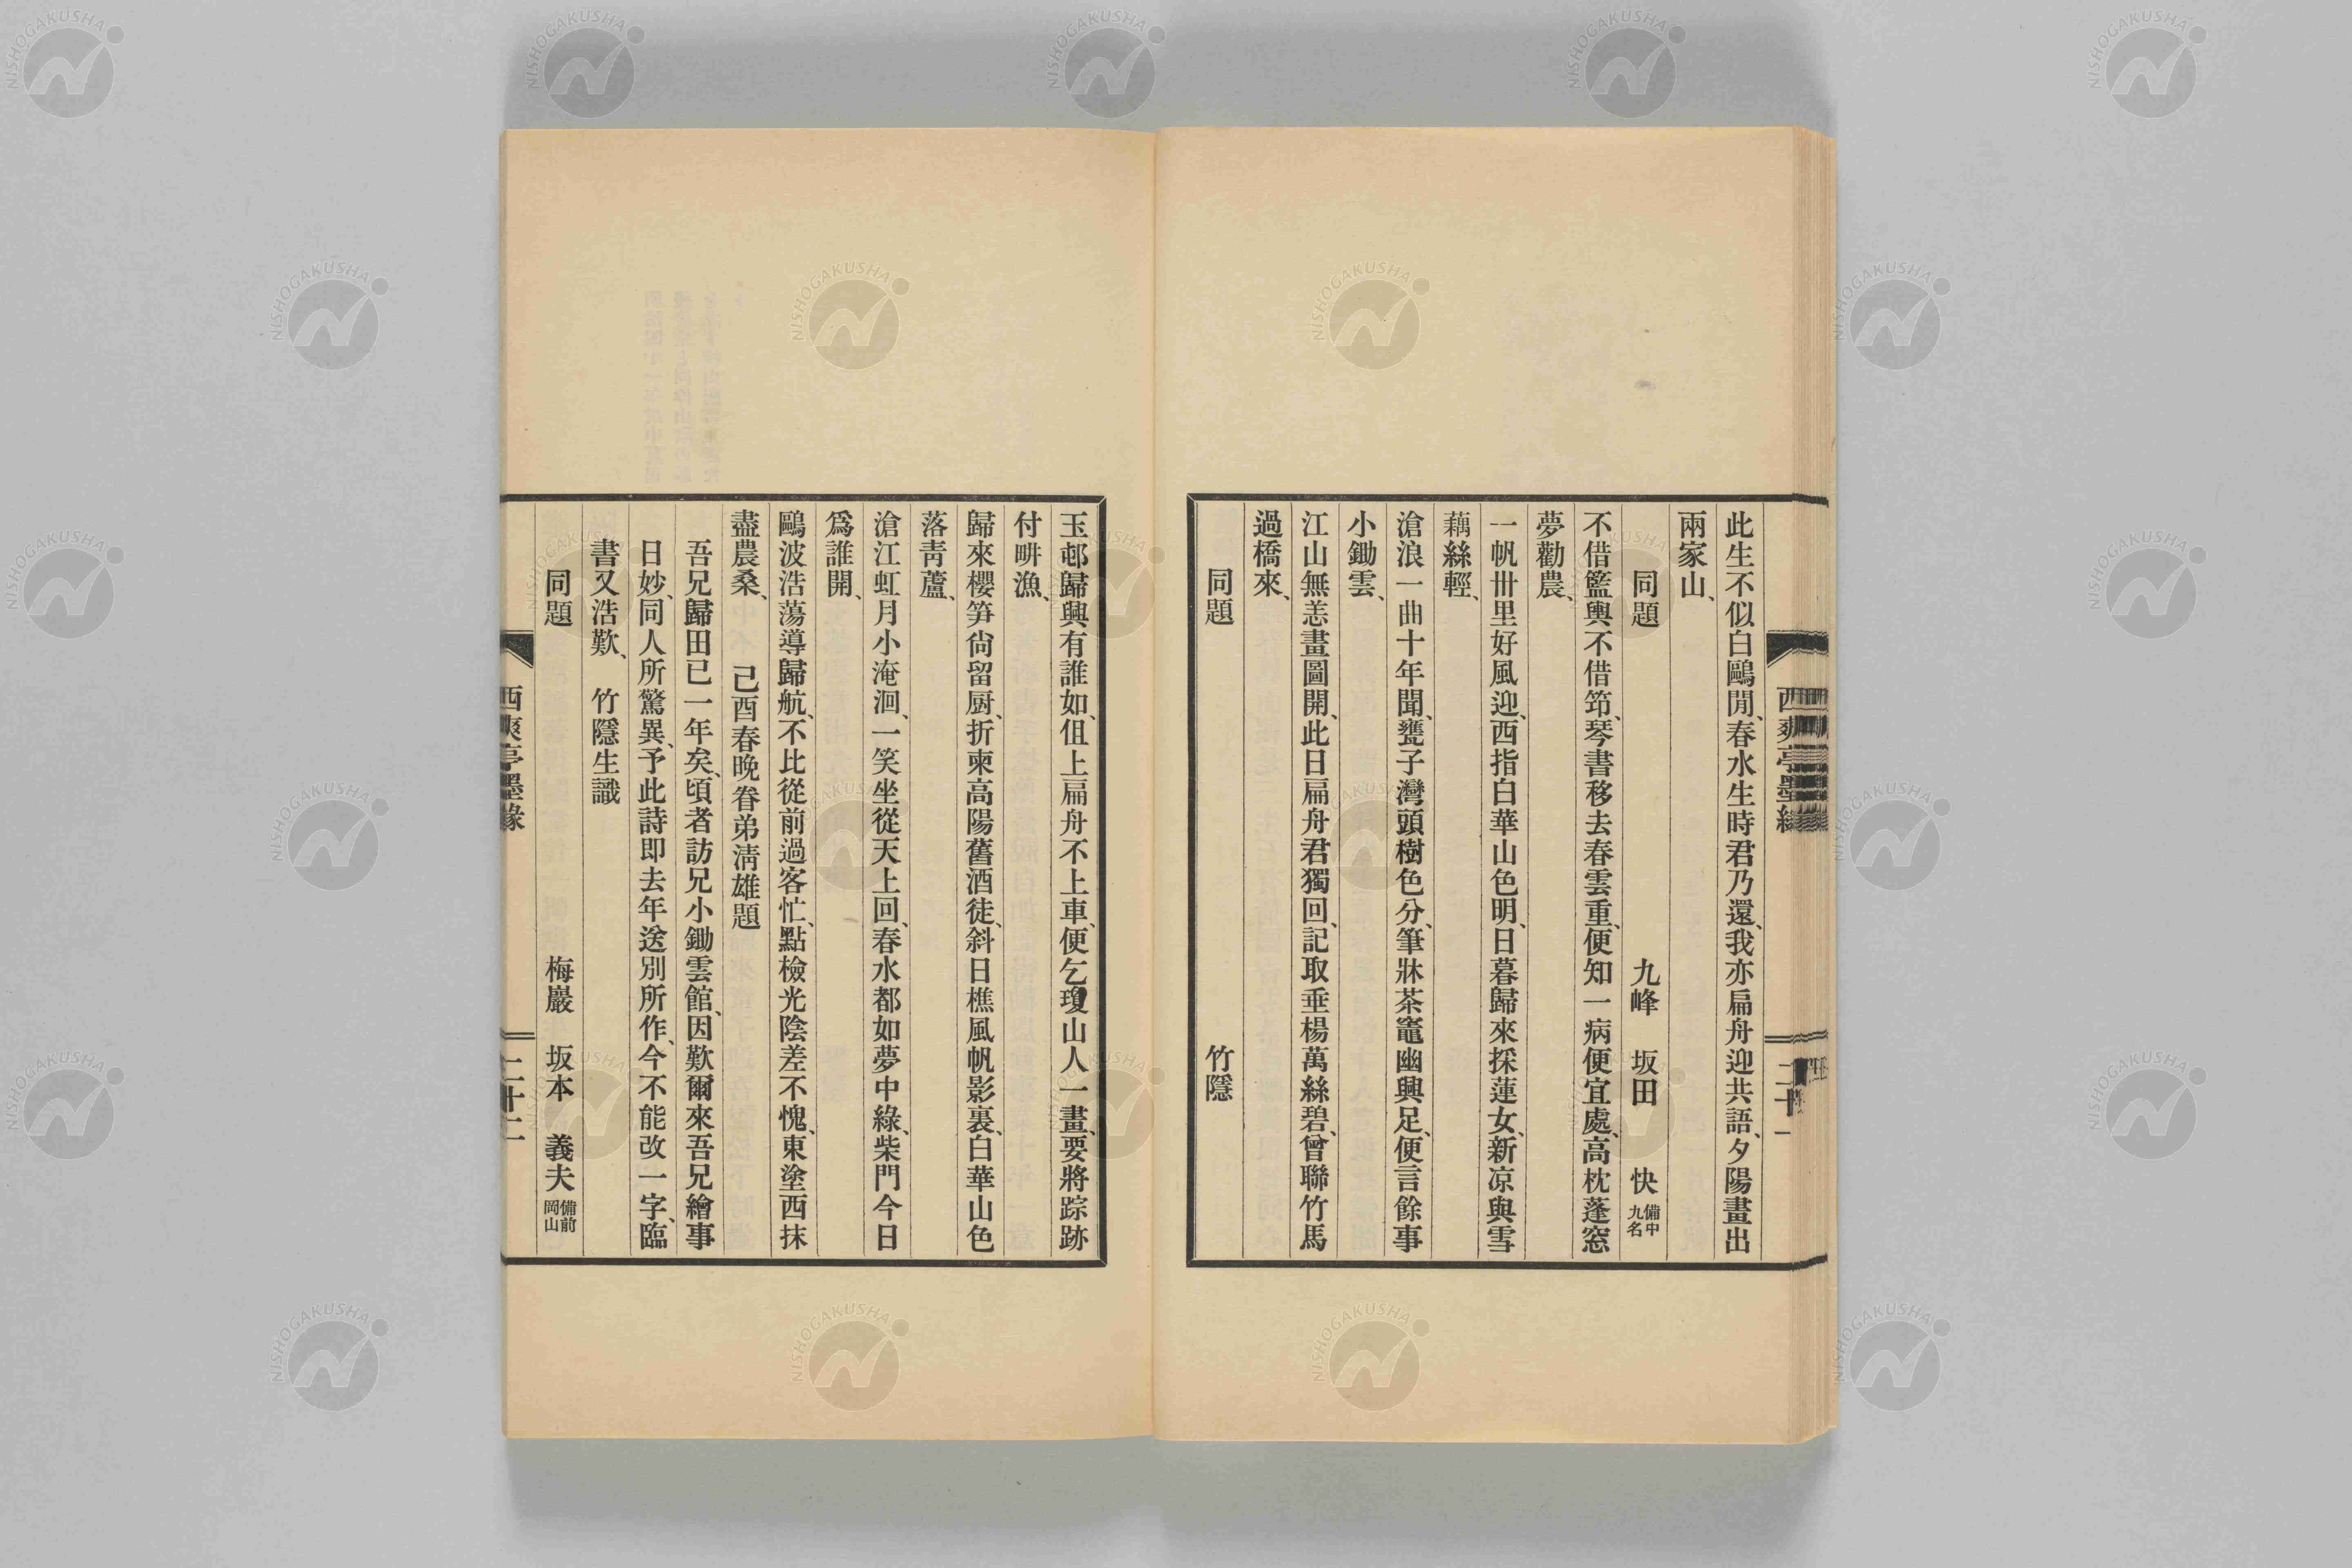 西爽亭墨緣
二十一
此生不似白鷗閒、春水生時君乃還、我亦扁舟迎共語、夕陽畫出
兩家山、
同題 九峰 坂田 快 備中九名
不借籃輿不借筇、琴書移去春雲重、便知一病便宜處、高枕蓬窓
夢勸農、
一帆卅里好風迎、西指白華山色明、日暮歸來採蓮女、新凉與雪
藕絲輕、
滄浪一曲十年聞、甕子灣頭樹色分、筆牀茶竈幽興足、便言餘事
小鋤雲、
江山無恙畫圖開、此日扁舟君獨回、記取垂楊萬絲碧、曾聯竹馬
過橋來、
同題 竹隱
玉邨歸興有誰如、但上扁舟不上車、便乞瓊山人一畫、要將踪跡
付畊漁、
歸來櫻笋尙留厨、折柬高陽舊酒徒、斜日樵風帆影裏、白華山色
落靑蘆、
滄江虹月小淹洄、一笑坐從天上回、春水都如夢中綠、柴門今日
爲誰開、
鷗波浩蕩導歸航、不比從前過客忙、點檢光陰差不愧、東塗西抹
盡農桑、 己酉春晚眷弟淸雄題
吾兄歸田已一年矣、頃者訪兄小鋤雲館、因歎爾來吾兄繪事
日妙、同人所驚異、予此詩即去年送別所作、今不能改一字、臨
書又浩歎、 竹隱生識
同題 梅巖 坂本 義夫 備前岡山
西爽亭墨緣
二十二
NISHOGAKUSHA